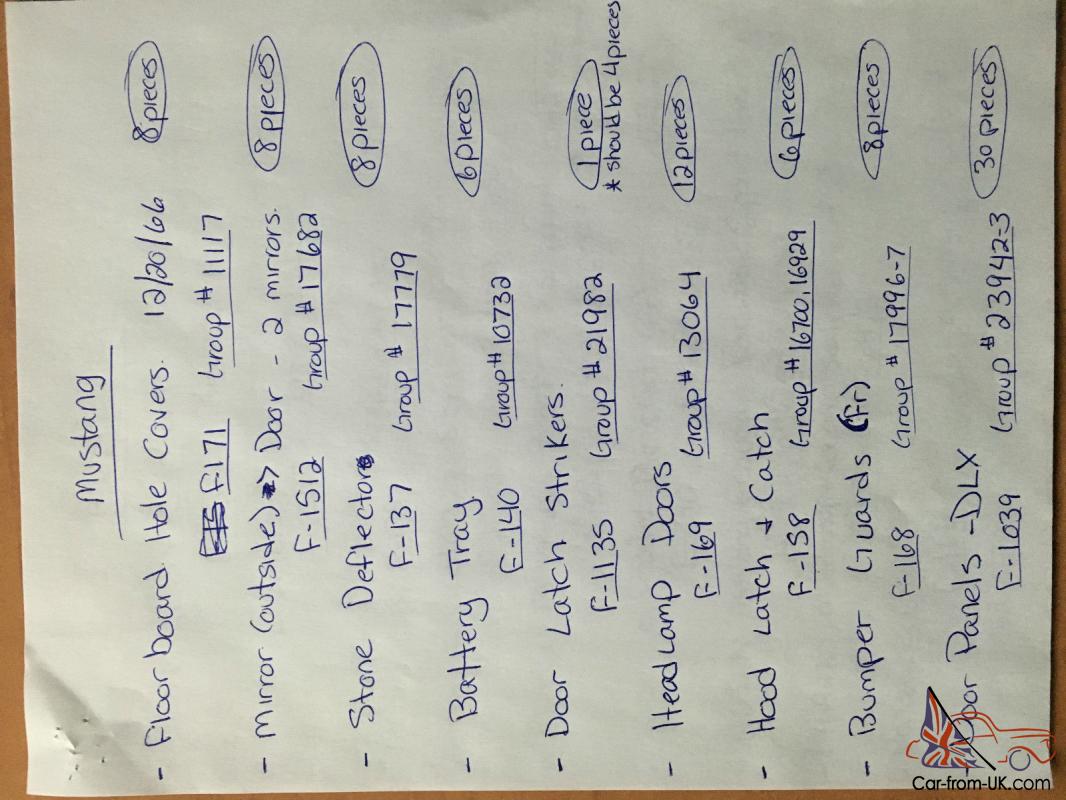 Mustang
- Floorboard Hole Covers. 12/20/66 8 pieces
F171 Group # 11117
- Mirror (outside) -> Door - 2 mirrors. 8 pieces
F-1512 Group # 17682
- Stone Deflectors 8 pieces
F-137 Group # 17779
- Battery Tray 6 pieces
F-140 Group # 10732
- Door Latch Strikers. 1 piece
* should be 4 pieces
F-1135 Group # 21982
- Headlamp Doors 12 pieces
F-169 Group # 13064
- Hood Latch + Catch 6 pieces
F-158 Group # 16700, 16929
- Bumper Guards (Fr) 8 pieces
F-168 Group # 17996-7
- Door Panels - DLX 30 pieces
F-1039 Group # 23942-3
Car-from-UK.com